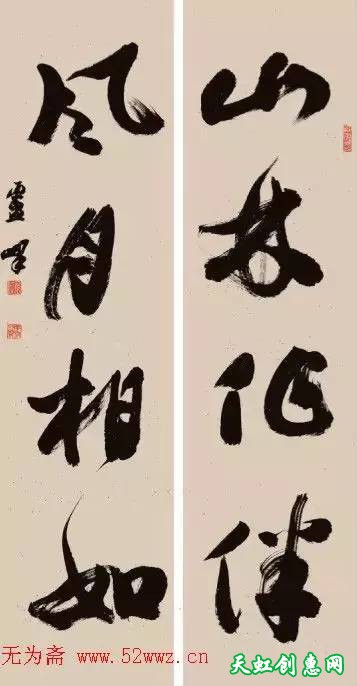 山林作伴
风月相如
無为斋 www.52wwz.cn
天虹创惠网